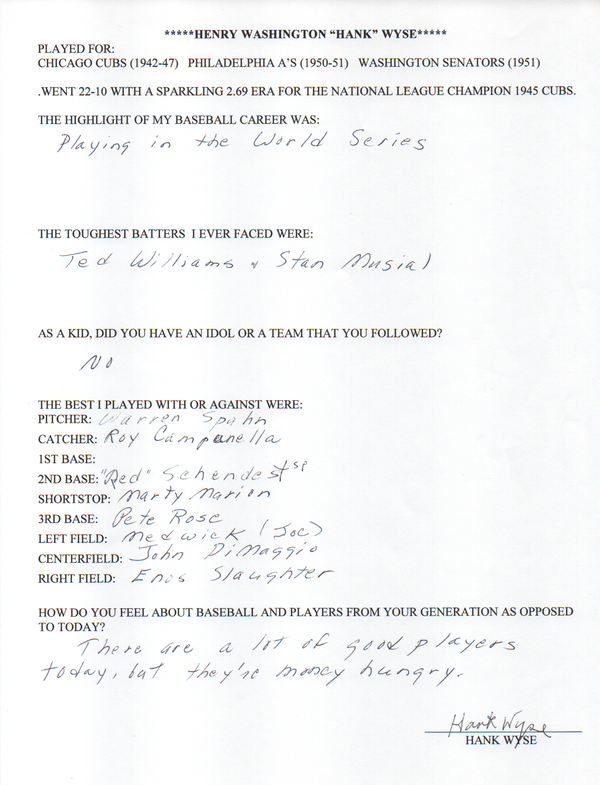 *****HENRY WASHINGTON “HANK” WYSE*****
PLAYED FOR:
CHICAGO CUBS (1942-47) PHILADELPHIA A'S (1950-51) WASHINGTON SENATORS (1951)
.WENT 22-10 WITH A SPARKLING 2.69 ERA FOR THE NATIONAL LEAGUE CHAMPION 1945 CUBS.
THE HIGHLIGHT OF MY BASEBALL CAREER WAS:
Playing in the World Series
THE TOUGHEST BATTERS I EVER FACED WERE:
Ted Williams & Stan Musial
AS A KID, DID YOU HAVE AN IDOL OR A TEAM THAT YOU FOLLOWED?
NO
THE BEST I PLAYED WITH OR AGAINST WERE:
PITCHER: Warren Spahn
CATCHER: Roy Campanella
1ST BASE:
2ND BASE: "Red" Schendest sp
SHORTSTOP: Marty Marion
3RD BASE: Pete Rose
LEFT FIELD: Medwick (Joe)
CENTERFIELD: John DiMaggio
RIGHT FIELD: Enos Slaughter
HOW DO YOU FEEL ABOUT BASEBALL AND PLAYERS FROM YOUR GENERATION AS OPPOSED
TO TODAY?
There are a lot of good players
today, but they're money hungry.
Hank Wyse
HANK WYSE